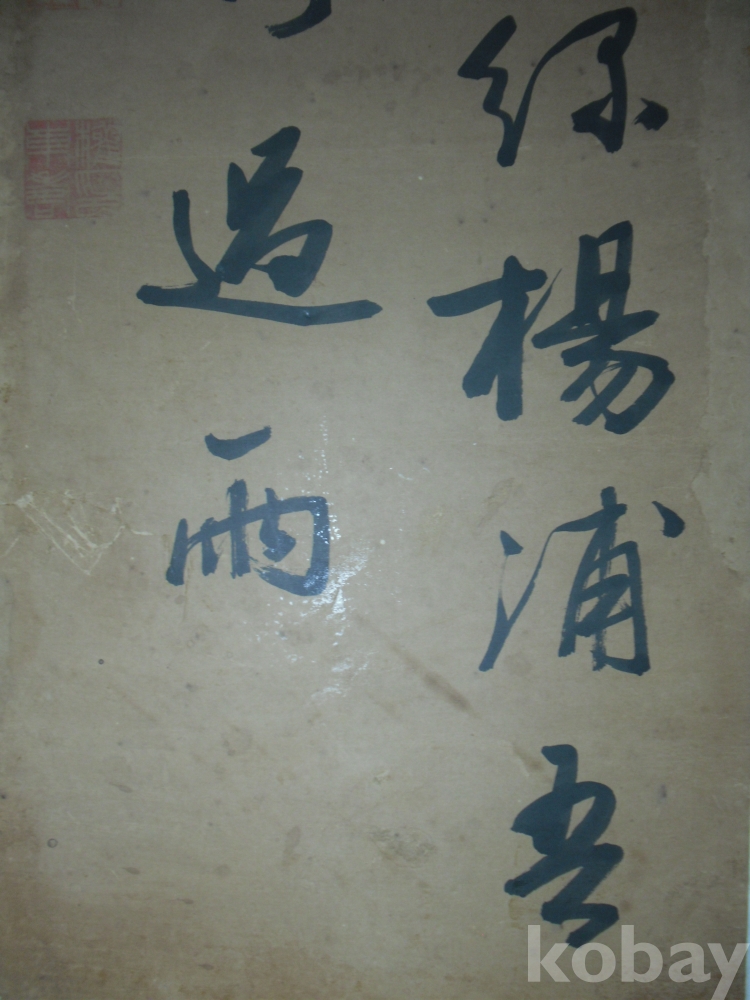 綠楊浦吾
過雨
kobay